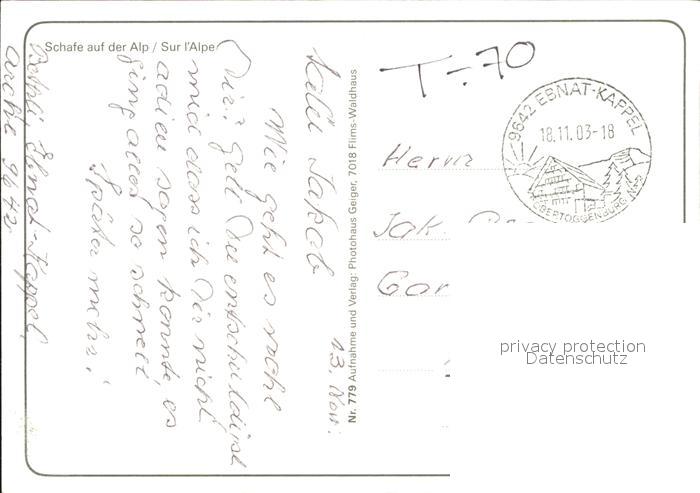 Schafe auf der Alp / Sur l'Alpe
Nr. 779 Aufnahme und Verlag: Photohaus Geiger, 7018 Flims-Waldhaus
13. Nov.
Jakob
Wie geht es wohl
Dir? Gell Du entschuldigst
mich dass ich Dir nicht
adieu sagen konnte, es
ging alles so schnell
Später mehr!
Ebnat-Kappel
9642
T-:70
9642 EBNAT-KAPPEL
18.11.03-18
OBERTOGGENBURG
Herrn
Jak
Gar
privacy protection
Datenschutz